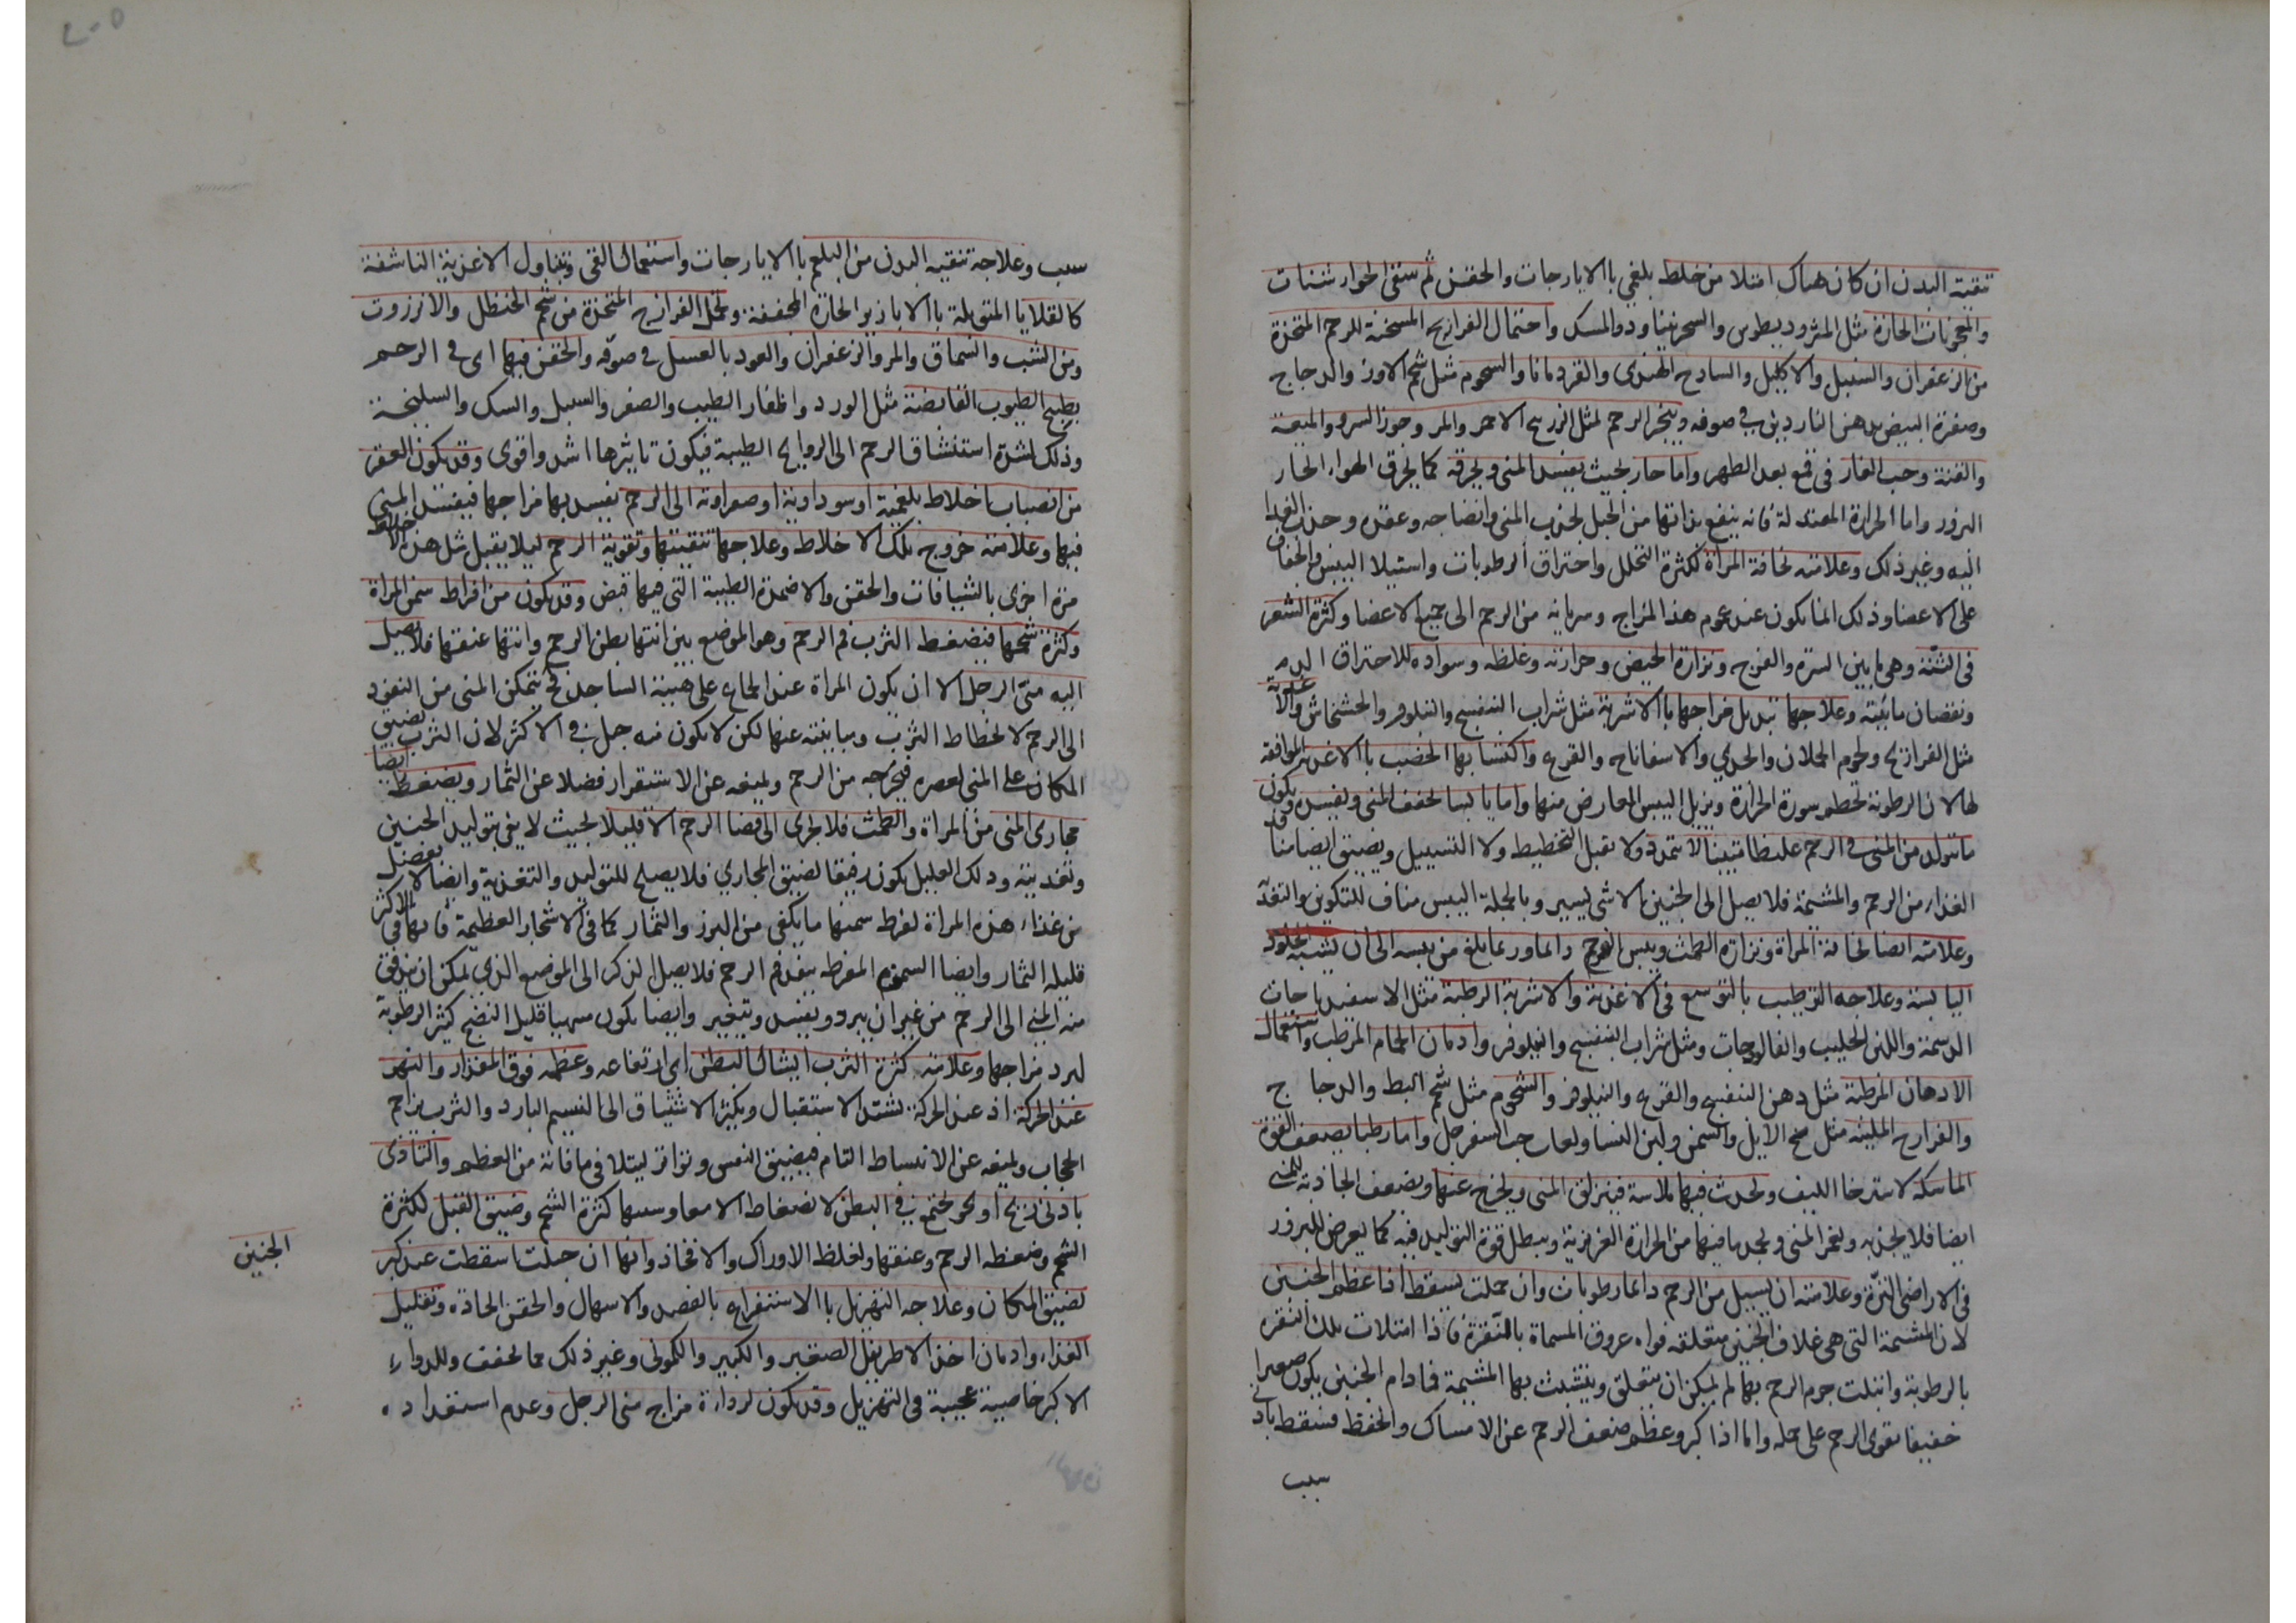 تنقية البدن ان كان هناك امتلا من خلط بلغمي باالايارجات والحقن ثم سقى الجوارشنات
والمعجونات الحارة مثل المثروديطوس والسجرنيا ودوالمسك واحتمال الفرازيج المسخنة للرحم المتخذة
من الزعفران والسنبل والاكليل والسادج الهندى والقردمانا والشحوم مثل شحم الاوز والدجاج
وصفرة البيض بدهن الناردين في صوفه ويبخر الرحم لمثل الزرنيخ الاحمر والمر وجوز السرو والميعة
والقنة وحب الغار فى قمع بعد الطهر واما حار بحيث يفسد المنى ويحرقه كما يحرق الهواء الحار
البزور واما الحرارة المعتدلة فانه ينفع بذاتها من الحبل لجذب المنى وانضاجه وعقده وجذب الغدا
اليه وغير ذلك وعلامته نحافة المراة لكثرة التحلل واحتراق الرطوبات واستيلا اليبس والجفاف
على الاعضا وذلك انما يكون عند عموم هذا المزاج وسريانه من الرحم الى جميع الاعضا وكثرة الشعر
فى الثنة وهى ما بين السرة والفرج ونزارة الحيض وحرارته وغلظه وسواده للاحتراق الدم
ونقصان مائيته وعلاجها تبديل مزاجها باالاشربة مثل شراب البنفسج والنيلوفر والخشخاش والاغذية
مثل الفراريج ولحوم الحملان والجدي والاسفاناخ والقرع واكتسابها الخصب باالاغذية الموافقة
لها لان الرطوبة تحطم سورة الحرارة ويزيل اليبس العارض منها واما يابسا يجفف المنى ويفسده ويكون
ما يتولد من المنى فى الرحم غليظا متينا لا يتمدد ولا يقبل التخطيط ولا التسبيل ويضيق ايضا منا
الغذاء من الرحم والمشيمة فلا يصل الى الجنين الا شى ليسير وبالجملة اليبس مناف للتكوين والتغذ
وعلامته ايضا نحافة المراة ونزارة الطمث ويبس الفرج دائما وربما بلغ من يبسه الى ان يشبه الجلود
اليابسة وعلاجه الترطيب بالتوسع فى الاغذية والاشربة الرطبة مثل الاسفيدباجات
الدسمة واللبن الحليب والفالوذجات ومثل شراب البنفسج والنيلوفر وادمان الحمام المرطب واستعمال
الادهان المرطبة مثل دهن البنفسج والقرع والنيلوفر والشحوم مثل شحم البط والدجاج
والفرازج الملينه مثل مخ الايل والسمن ولبن النسا ولعاب حب السفرجل واما رطبا يضعف القوة
الماسكه لاسترخا الليف ويحدث فيها ملاسة فينزلق المنى ويخرج عنها ويضعف الجاذبة للمنى
ايضا فلا يجذبه ويغمر المنى ويخمد ما فيها من الحرارة الغريزية ويبطل قوة التوليد فيه كما يعرض للبزور
فى الاراضى النزّة وعلامته ان يسيل من الرحم دائما رطوبات وان حملت يسقط اذا عظم الجنين
لان المشيمة التى هى غلاف الجنين متعلقه فواه عروق المسماة بالنقرة فاذا امتلات تلك النقره
بالرطوبة وابتلت جرم الرحم بها لم يمكن ان يتعلق ويتشبث بها المشيمة فمادام الجنين يكون صغيرا
خفيفا يقوى الرحم على حمله واما اذا كبر وعظم ضعف الرحم عن الامساك والحفظ فسقط بادنى
سبب
سبب وعلاجه تنقيه البدن من البلغم باالايارجات واستعمال القى وتناول الاغذية الناشفة
كالقلايا المتوبلة باالابازير الحارة المجففة وتحمل الفرازج المتخذة من شحم الحنظل والانزروت
ومن الشب والسماق والمر والزعفران والعود بالعسل فى صوفه والحقن فيها اى فى الرحم
بطبيخ الطيوب القابضة مثل الورد واظفار الطيب والصعتر والسنبل والسك والسليخة
وذلك لشدة استنشاق الرحم الى الروايح الطيبة فيكون تاثيرها اشد واقوى وقد يكون العقر
من انصباب اخلاط بلغمية او سوداوية او صفراوية الى الرحم يفسد بها مزاجها فيفسد المنى
فيها وعلامته خروج تلك الاخلاط وعلاجها تنقيتها وتقوية الرحم ليلا يقبل مثل هذه الاخلاط
مرة اخرى بالشيافات والحقن والاضمدة الطيبة التى فيها قبض وقد يكون من افراط سمن المراة
وكثرة شحمها فيضغط الثرب فم الرحم وهو الموضع بين انتها بطن الرحم وانتها عنقها فلا يصل
اليه منى الرجل الا ان يكون المراة عند الجماع على هيئة الساجد فح يتمكن المنى من النفوذ
الى الرحم لانحطاط الثرب ومباينته عنها لكن لا يكون منه حبل فى الاكثر لان الثرب يضيق
المكان على المنى لعصره فيخرجه من الرحم ويمنعه عن الاستقرار فضلا عن الثمار ويضغط ايضا
مجارى المنى من المراة والطمث فلا يجرى الى فضا الرحم الا قليلا بحيث لا يفى بتوليد الجنين
وتغذيته وذلك القليل يكون رقيقا لضيق المجاري فلا يصلح للتوليد والتغذية وايضا لا يفضل
من غذاء هذه المراة لفرط سمنها ما يكفى من البزر والثمار كما فى الاشجار العظيمة فانها فى الاكثر
قليله الثمار وايضا السمن المفرطه يبعد فم الرحم فلا يصل الذكر الى الموضع الذي يمكن ان يدفق
منه المنى الى الرحم من غير ان يبرد ويفسد ويتغير وايضا يكون منيها قليل النضج كثير الرطوبة
لبرد مزاجها وعلامته كثرة الثرب انتشال البطن اى ارتفاعه وعظمه فوق المقدار والبهر
عند الحركة اذ عند الحركة يشتد الاستقبال ويكثر الاشتياق الى النسيم البارد والثرب يزاحم
الحجاب ويمنعه عن الانبساط التام فيضيق النفس وتواتر ليتلافى ما فاته من العظم والتاذى
بادنى ريح او نجو يجتمع فى البطن لانضغاط الامعا وسببها كثرة الشحم وضيق القبل لكثرة
الشحم وضغطه الرحم وعنقها ولغلظ الاوراك والافخاذ وانها ان حبلت اسقطت عند كبر
الجنين
لضيق المكان وعلاجه التهزيل باالاستفراغ بالفصد والاسهال والحقن الحاده وتقليل
الغذاء وادمان اخذ الاطريفل الصغير والكبير والكمونى وغير ذلك مما يجفف وللدواء
الاكبر خاصية عجيبة فى التهزيل وقد يكون لرداءة مزاج منى الرجل وعدم استعداده